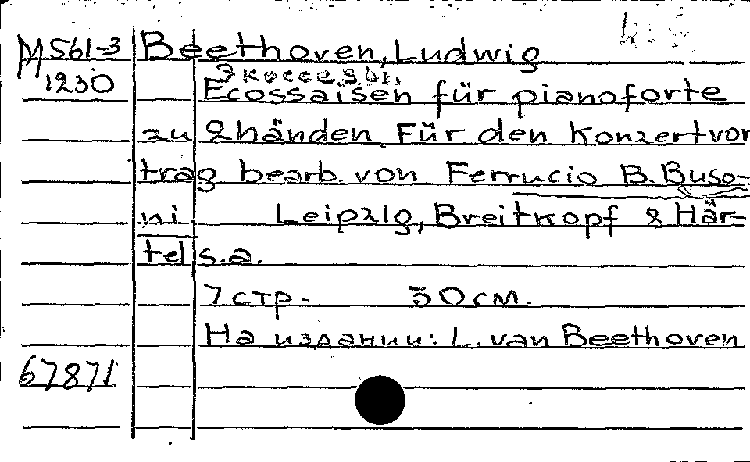 М561-3 Beethoven, Ludwig
1230 Экосезы.
Ecossaisen für pianoforte
zu 2händen. Für den Konzertvor
trag bearb. von Ferrucio B. Buso-
ni. Leipzig, Breitkopf & Här-
tel s.a.
7 стр. 30 см.
На издании: L. van Beethoven
67871